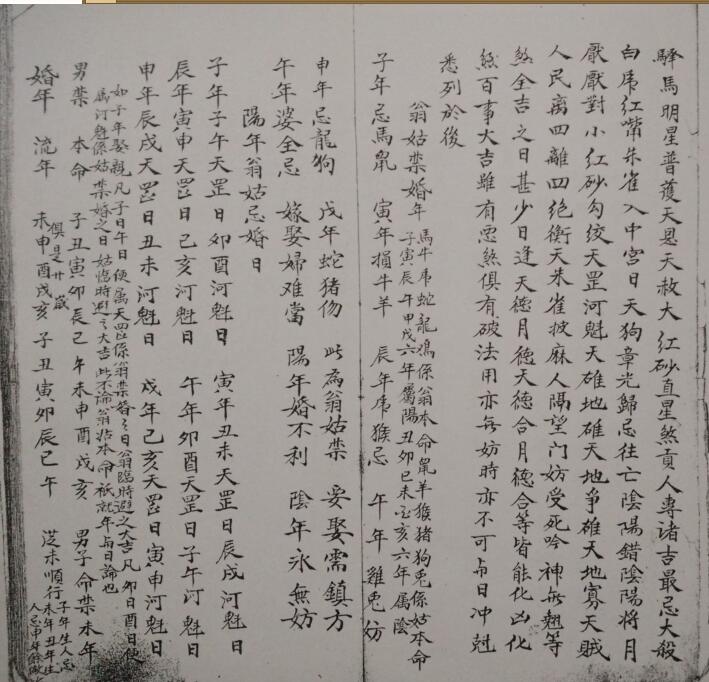 驛馬明星普護天恩天赦大紅砂直星煞貢人專諸吉最忌大殺
白虎紅嘴朱雀入中宮日天狗章光歸忌往亡陰陽錯陰陽將月
厭厭對小紅砂勾絞天罡河魁天碓地碓天地爭碓天地寡天賊
人民離四離四絕衝天朱雀披麻人隔望門妨受死吟神無翹等
煞全吉之日甚少日逢天德月德天德合月德合等皆能化凶化
煞百事大吉雖有惡煞俱有破法用亦無妨時亦不可與日冲尅
悉列於後
翁姑禁婚年 馬牛虎蛇龍鷄係翁本命鼠羊猴猪狗兎係姑本命
子寅辰午申戌六年屬陽丑卯巳未酉亥六年屬陰
子年忌馬鼠 寅年損牛羊 辰年虎猴忌 午年雞兎妨
申年忌龍狗 戌年蛇猪傷 此為翁姑禁 妄娶需鎮方
午年婆全忌 嫁娶婦难當 陽年婚不利 陰年永無妨
陽年翁姑忌婚日
子年子午天罡日卯酉河魁日 寅年丑未天罡日辰戌河魁日
辰年寅申天罡日己亥河魁日 午年卯酉天罡日子午河魁日
申年辰戌天罡日丑未河魁日 戌年己亥天罡日寅申河魁日
如子年娶親凡子日午日便屬天罡係翁禁婚之日翁臨時避之大吉凡卯日酉日便
屬河魁係姑禁婚之日姑臨時避之大吉此不論翁姑本命祇就年與日論也
男禁 本命 子丑寅卯辰己午未申酉戌亥 男子命禁未年
俱是廿歲
婚年 流年 未申酉戌亥子丑寅卯辰己午 從未順行
子年生人忌
未年丑年生
人忌申年餘